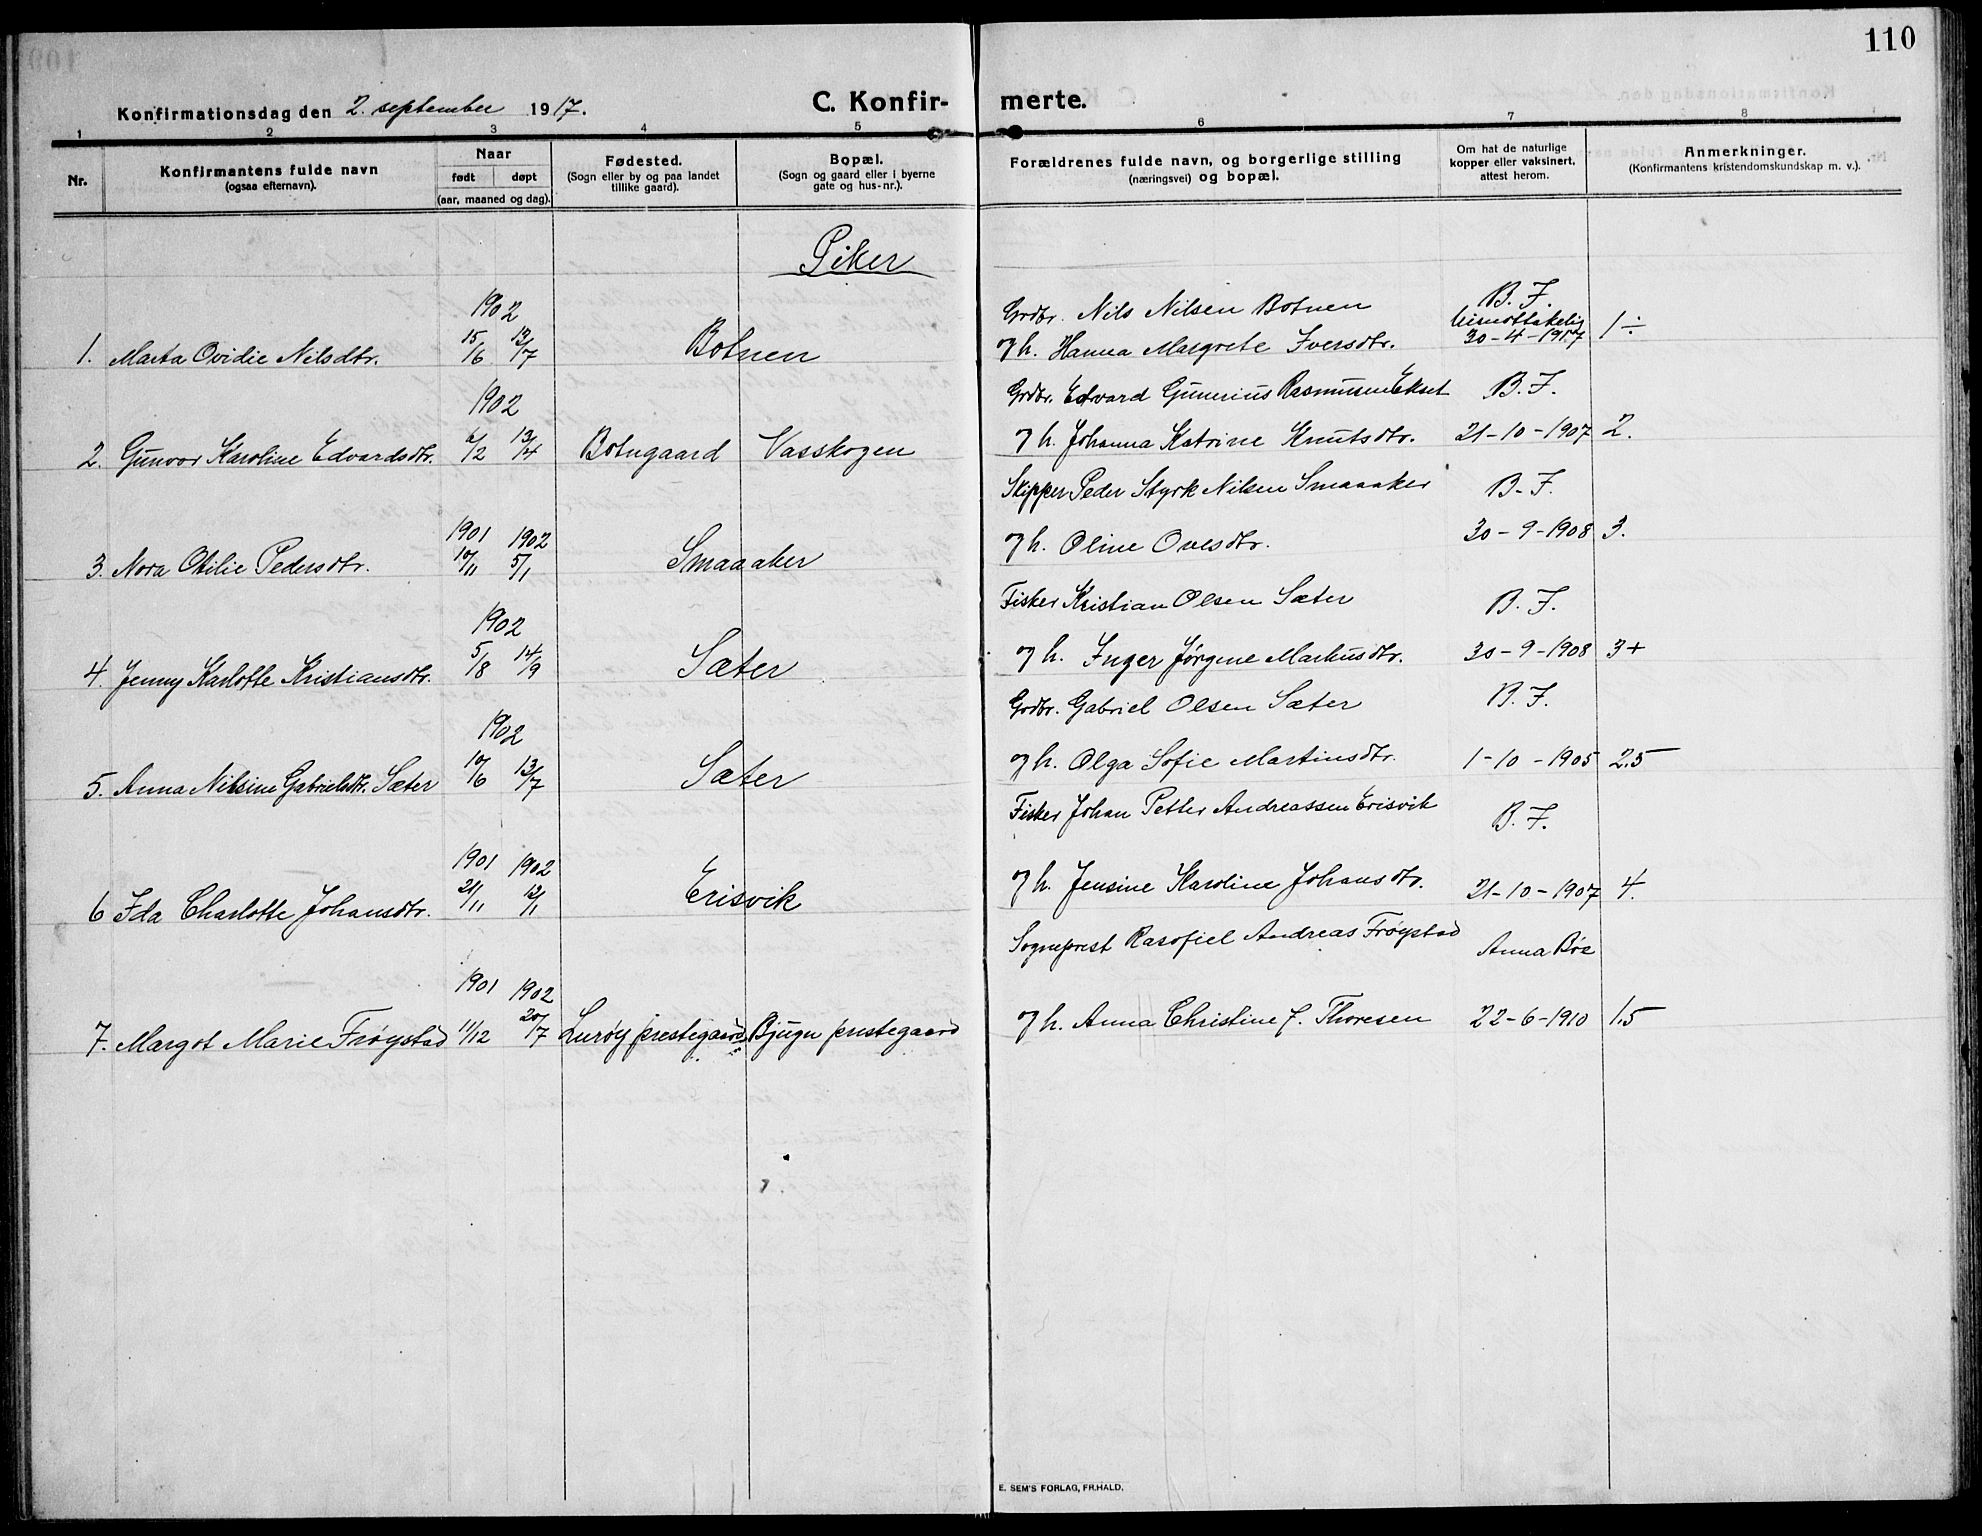 110
Konfirmationsdag den 2. september 1917.
C. Konfir- merte.
1 2 3 4 5 6 7 8
Nr.
Konfirmantens fulde navn
(ogsaa efternavn).
Naar
født døpt
(aar, maaned og dag).
Fødested.
(Sogn eller by og paa landet
tillike gaard).
Bopæl.
(Sogn og gaard eller i byerne
gate og hus-nr.).
Forældrenes fulde navn, og borgerlige stilling
(næringsvei) og bopæl.
Om hat de naturlige
kopper eller vaksinert,
attest herom.
Anmerkninger.
(Konfirmantens kristendomskundskap m. v.).
Piker
1902 Grdbr. Nils Nilsen Botnen B. F.
uimottakelig
1. Marta Ovidie Nilsdtr. 15/6 13/7 Botnen og h. Hanna Margrete Iversdtr. 30-4-1917 1÷
1902 Grdbr. Edvard Gunerius Rasmussen Ekset B. F.
2. Gunvor Karoline Edvardsdtr. 6/2 13/4 Botngaard Vasskogen og h. Johanna Katrine Knutsdtr. 21-10-1907 2.
Skipper Peder Styrk Nilsen Smaaaker B. F.
1901 1902
3. Nora Otilie Pedersdtr. 10/11 5/1 Smaaaker og h. Oline Ovesdtr. 30-9-1908 3.
1902 Fisker Kristian Olsen Sæter B. F.
4. Jenny Karlotte Kristiansdtr. 5/8 14/9 Sæter og h. Inger Jørgine Markusdtr. 30-9-1908 3+
1902 Grdbr. Gabriel Olsen Sæter B. F.
5. Anna Nilsine Gabrielsdtr. Sæter 10/6 13/7 Sæter og h. Olga Sofie Martinsdtr. 1-10-1905 2.5
Fisker Johan Petter Andreassen Erisvik B. F.
1901 1902
6 Ida Charlotte Johansdtr. 21/11 12/1 Erisvik og h. Jensine Karoline Johansdtr. 21-10-1907 4.
Sogneprest Rasofiel Andreas Frøystad Anna Bøe
1901 1902
7. Margot Marie Frøystad 11/12 20/7 Lurøy prestegaard Bjugn prestegaard og h. Anna Christine f. Thoresen 22-6-1910 1.5
E. SEM'S FORLAG, FR.HALD.